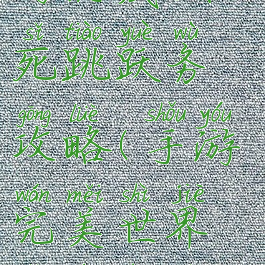 sǐ tiào yuè wù
死跳跃务
gōng lüè shǒu yóu
攻略(手游
wán měi shì jiè
完美世界